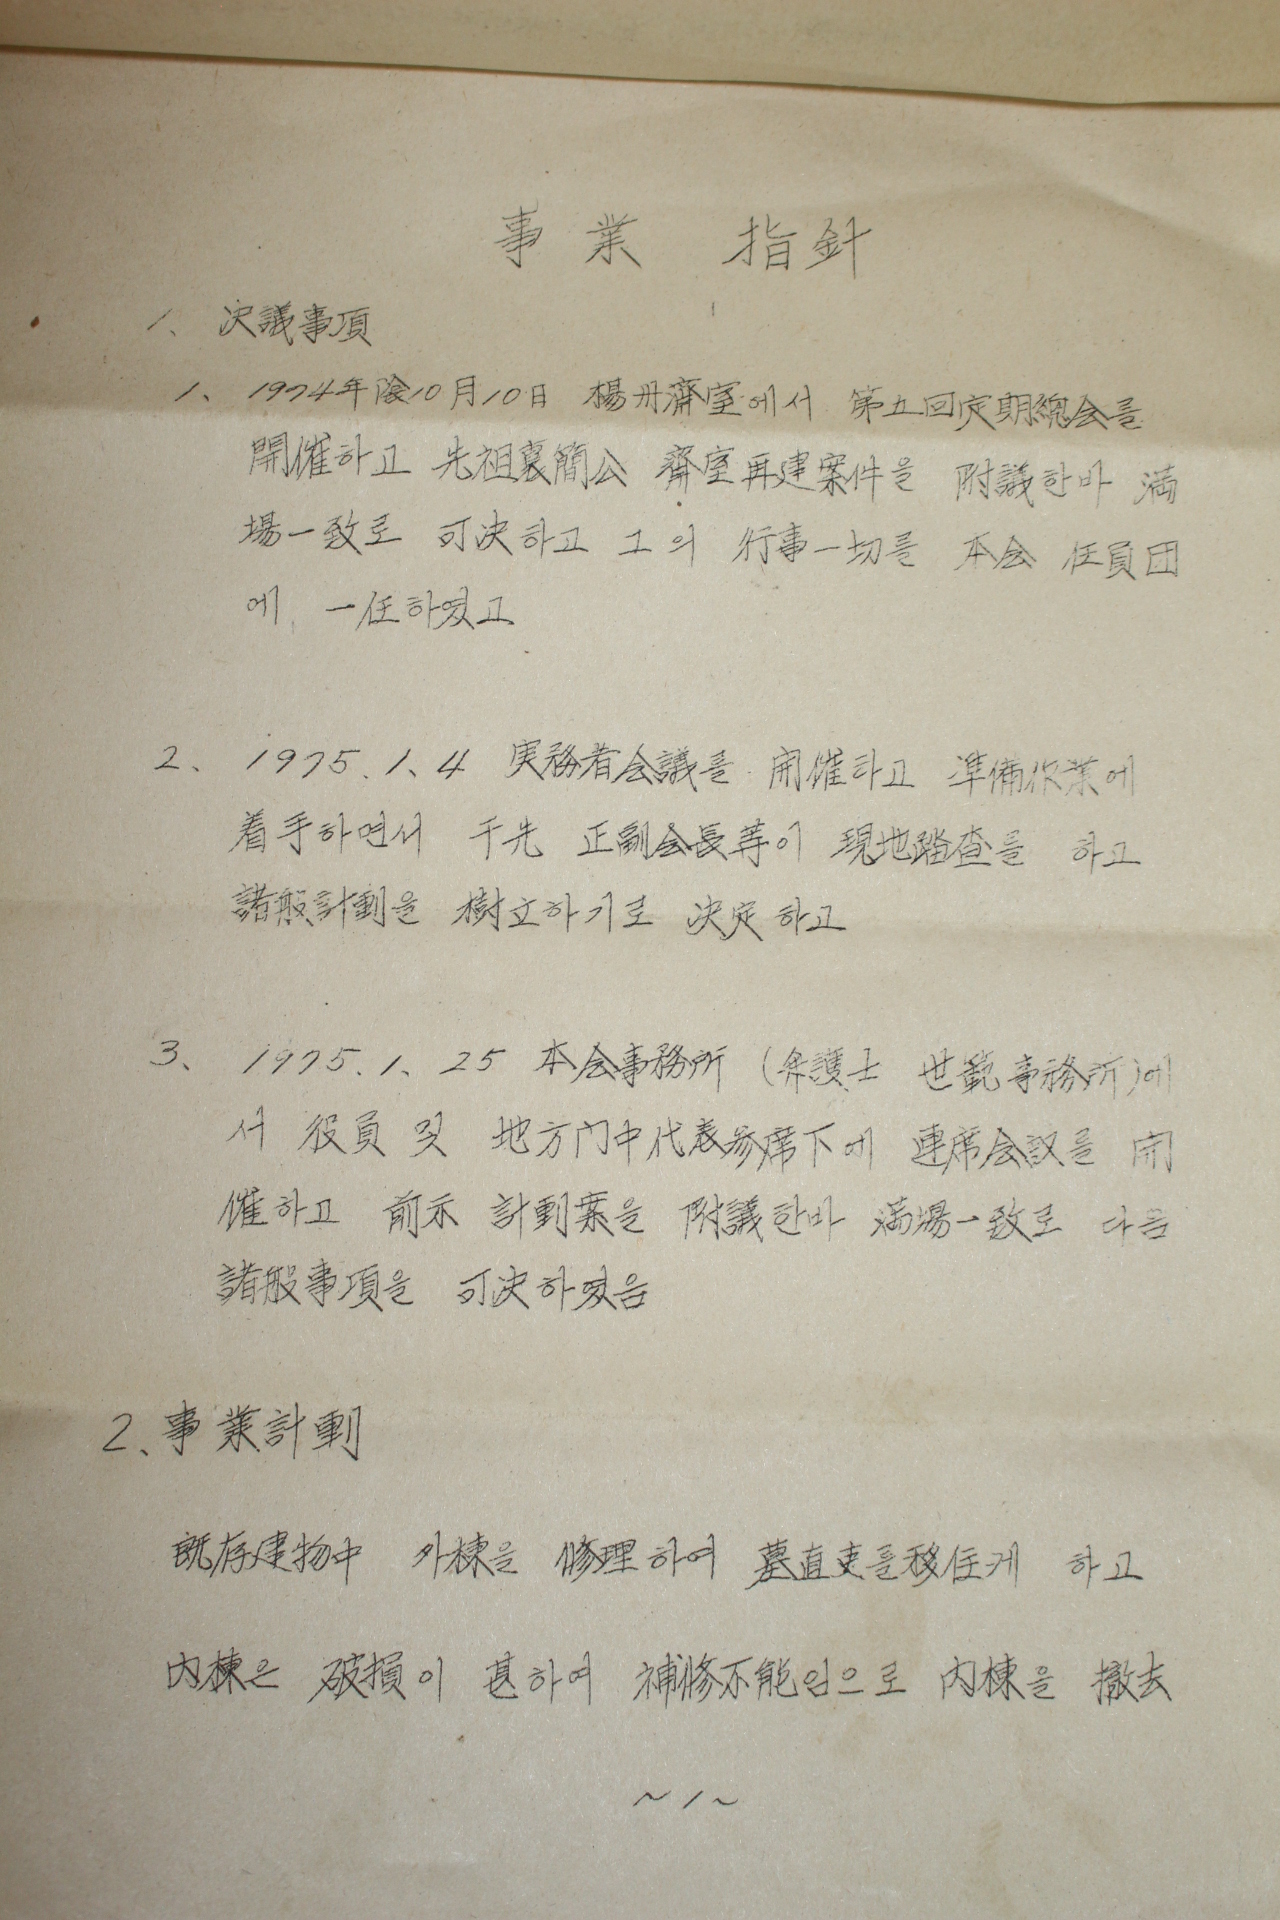 事業 指針
1、 決議事項
1、 1974年陰10月10日 楊州齋室에서 第五回定期總会를
開催하고 先祖襄簡公 齋室再建案件을 附議한바 満
場一致로 可決하고 그의 行事一切를 本会 任員団
에 一任하였고
2、 1975.1、4 実務者会議를 開催하고 準備作業에
着手하면서 于先 正副会長等이 現地踏査를 하고
諸般計劃을 樹立하기로 決定하고
3、 1975.1、25 本会事務所 (弁護士 世範事務所)에
서 役員 및 地方門中代表參席下에 連席会議를 開
催하고 前示 計劃案을 附議한바 満場一致로 다음
諸般事項을 可決하였음
2、事業計劃
既存建物中 外棟을 修理하여 墓直吏를移住케 하고
内棟은 破損이 甚하여 補修不能임으로 内棟을 撤去
~1~